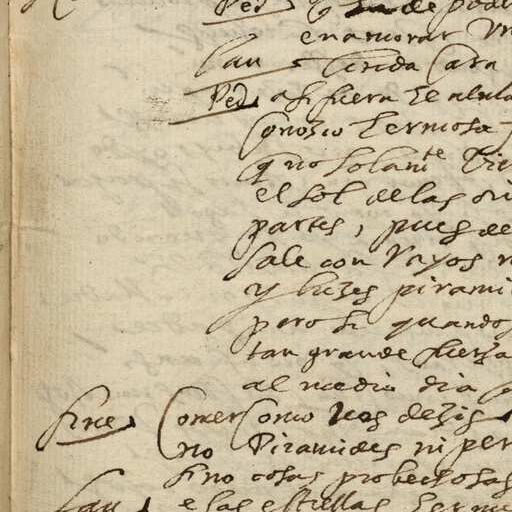 Ped q de pode
enamorar un
lau linda cara
Ped asi fuera
conozio hermosa
q no solamte
el sol de las
partes, pues de
sale con Rayos
y luzes pirami
pero si quando
tan grande fuerza
al medio dia
fine Comer Como vos dezis
no Piramides ni per
sino cosas probechosas
lau e las estrellas hermo